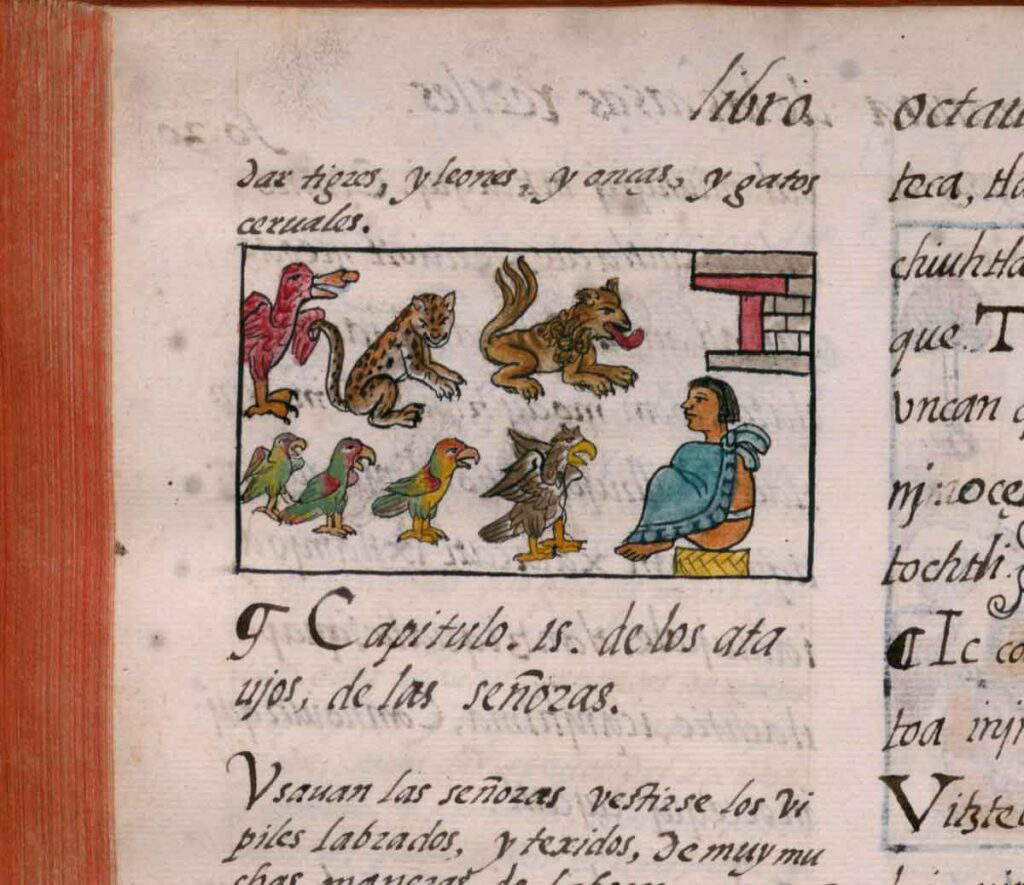 libro
dar tigres, y leones, y onças, y gatos
ceruales.
¶ Capitulo. 15. de los ata
ujos, de las señoras.
Vsauan las señoras vestirse los vi
piles labrados, y texidos, de muy mu
chas maneras de
octau
teca,
chiuhtla
que. T
vncan
tochtli.
¶ Ic co
toa inj
Vitzte